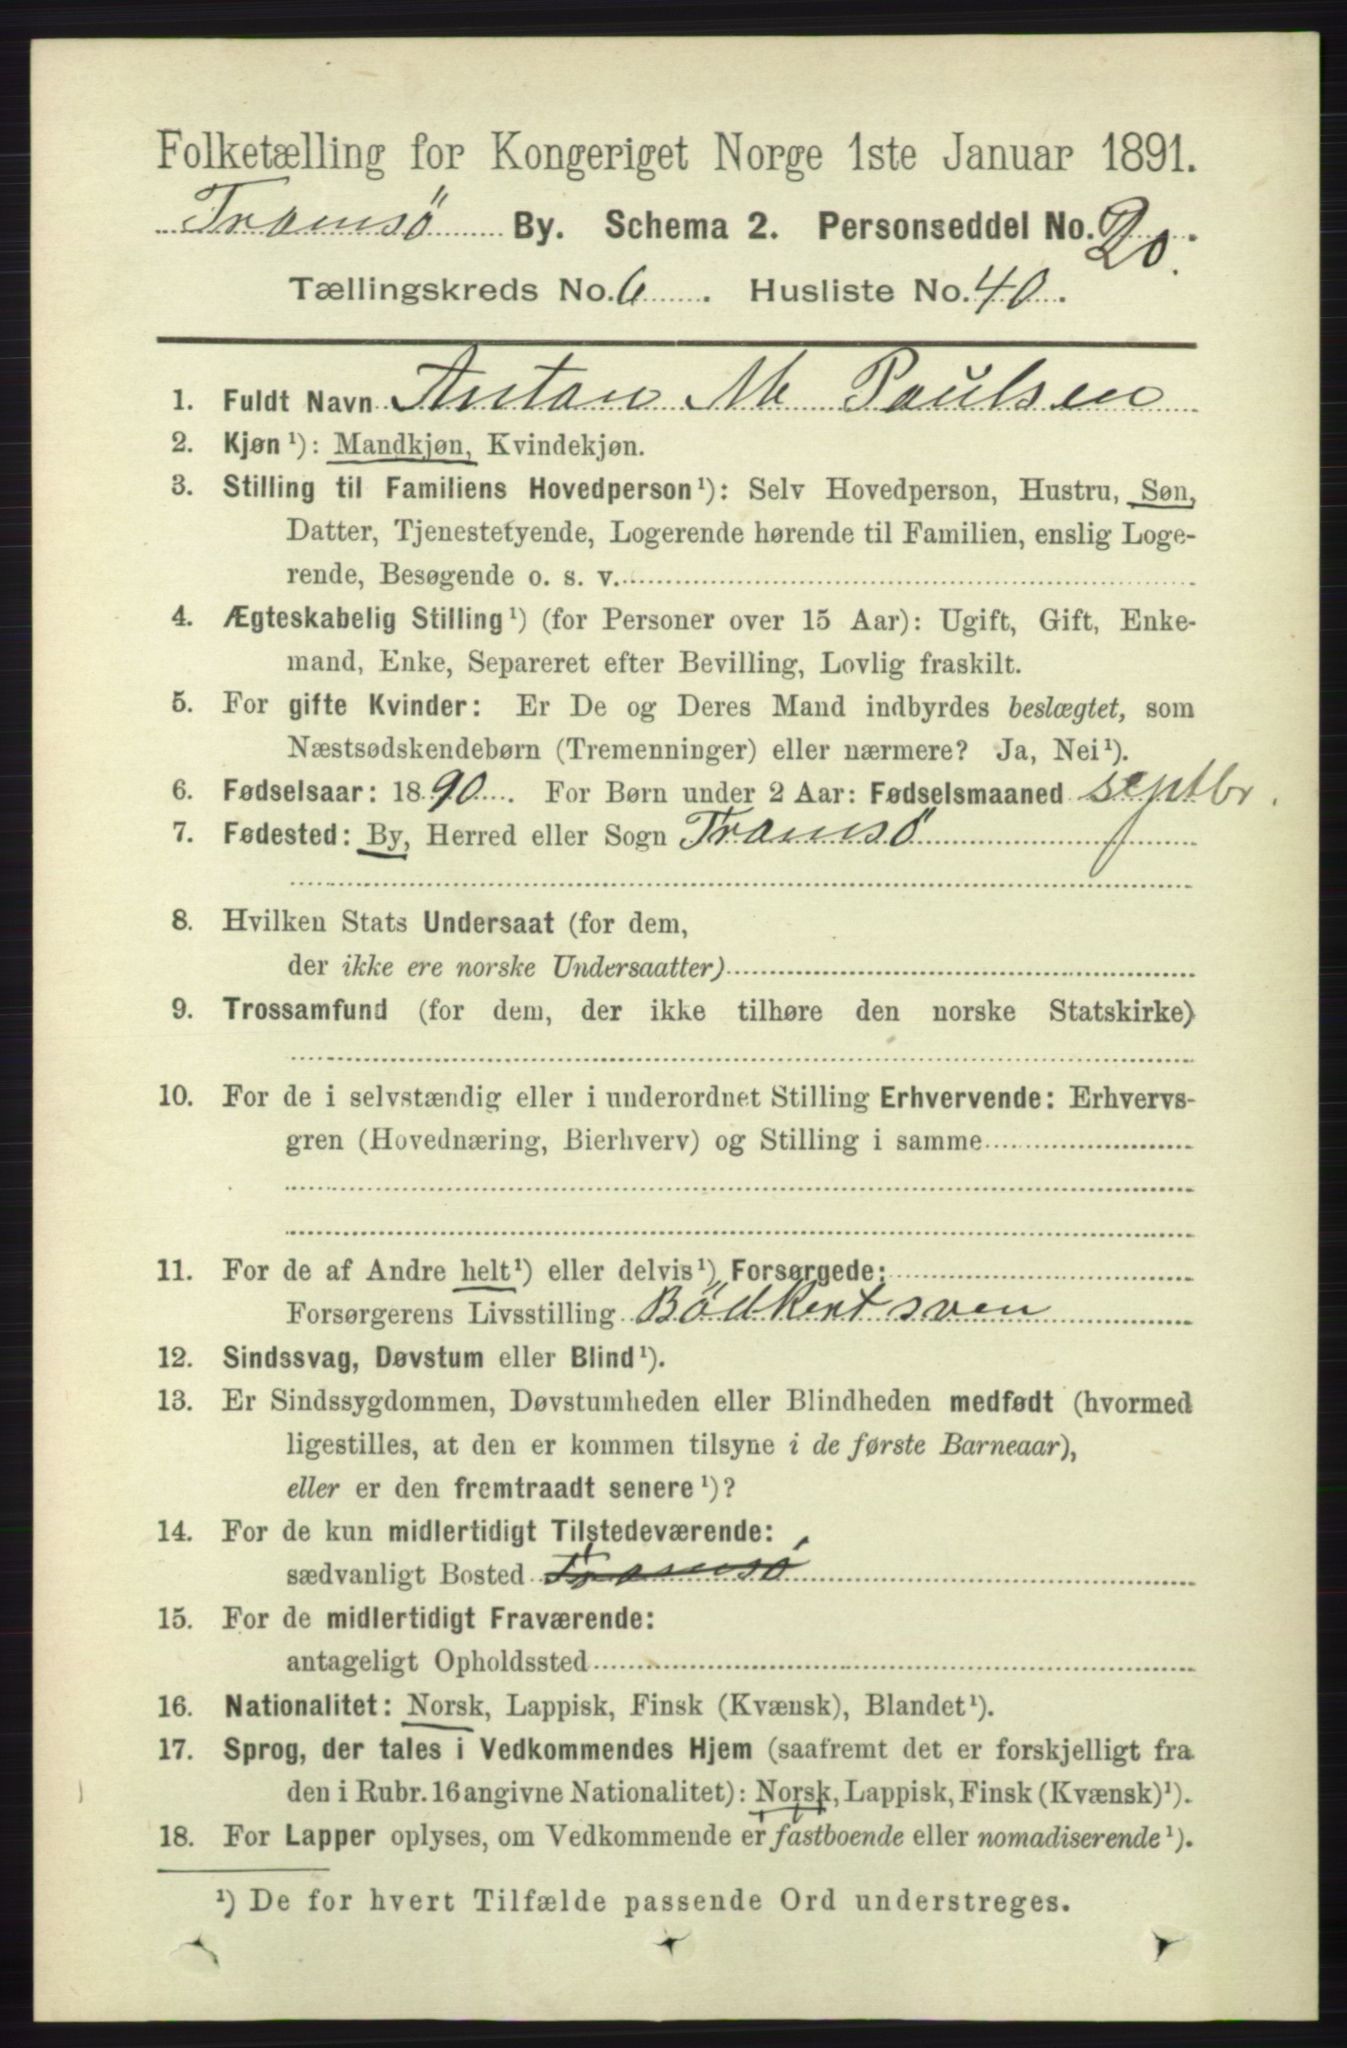 Folketælling for Kongeriget Norge 1ste Januar 1891.
Tromsö By. Schema 2. Personseddel No. 20.
Tællingskreds No. 6. Husliste No. 40.
1. Fuldt Navn Anton M Paulsen
2. Kjøn¹): Mandkjøn, Kvindekjøn.
3. Stilling til Familiens Hovedperson¹): Selv Hovedperson, Hustru, Søn,
Datter, Tjenestetyende, Logerende hørende til Familien, enslig Loge-
rende, Besøgende o. s. v.
4. Ægteskabelig Stilling¹) (for Personer over 15 Aar): Ugift, Gift, Enke-
mand, Enke, Separeret efter Bevilling, Lovlig fraskilt.
5. For gifte Kvinder: Er De og Deres Mand indbyrdes beslægtet, som
Næstsødskendebørn (Tremenninger) eller nærmere? Ja, Nei¹).
6. Fødselsaar: 1890. For Børn under 2 Aar: Fødselsmaaned septbr.
7. Fødested: By, Herred eller Sogn Tromsö
8. Hvilken Stats Undersaat (for dem,
der ikke ere norske Undersaatter)
9. Trossamfund (for dem, der ikke tilhøre den norske Statskirke)
10. For de i selvstændig eller i underordnet Stilling Erhvervende: Erhvervs-
gren (Hovednæring, Bierhverv) og Stilling i samme
11. For de af Andre helt¹) eller delvis¹) Forsørgede:
Forsørgerens Livsstilling Bödkersven
12. Sindssvag, Døvstum eller Blind¹).
13. Er Sindssygdommen, Døvstumheden eller Blindheden medfødt (hvormed
ligestilles, at den er kommen tilsyne i de første Barneaar),
eller er den fremtraadt senere¹)?
14. For de kun midlertidigt Tilstedeværende:
sædvanligt Bosted Tromsö
15. For de midlertidigt Fraværende:
antageligt Opholdssted
16. Nationalitet: Norsk, Lappisk, Finsk (Kvænsk), Blandet¹).
17. Sprog, der tales i Vedkommendes Hjem (saafremt det er forskjelligt fra
den i Rubr. 16 angivne Nationalitet): Norsk, Lappisk, Finsk (Kvænsk)¹).
18. For Lapper oplyses, om Vedkommende er fastboende eller nomadiserende¹).
¹) De for hvert Tilfælde passende Ord understreges.